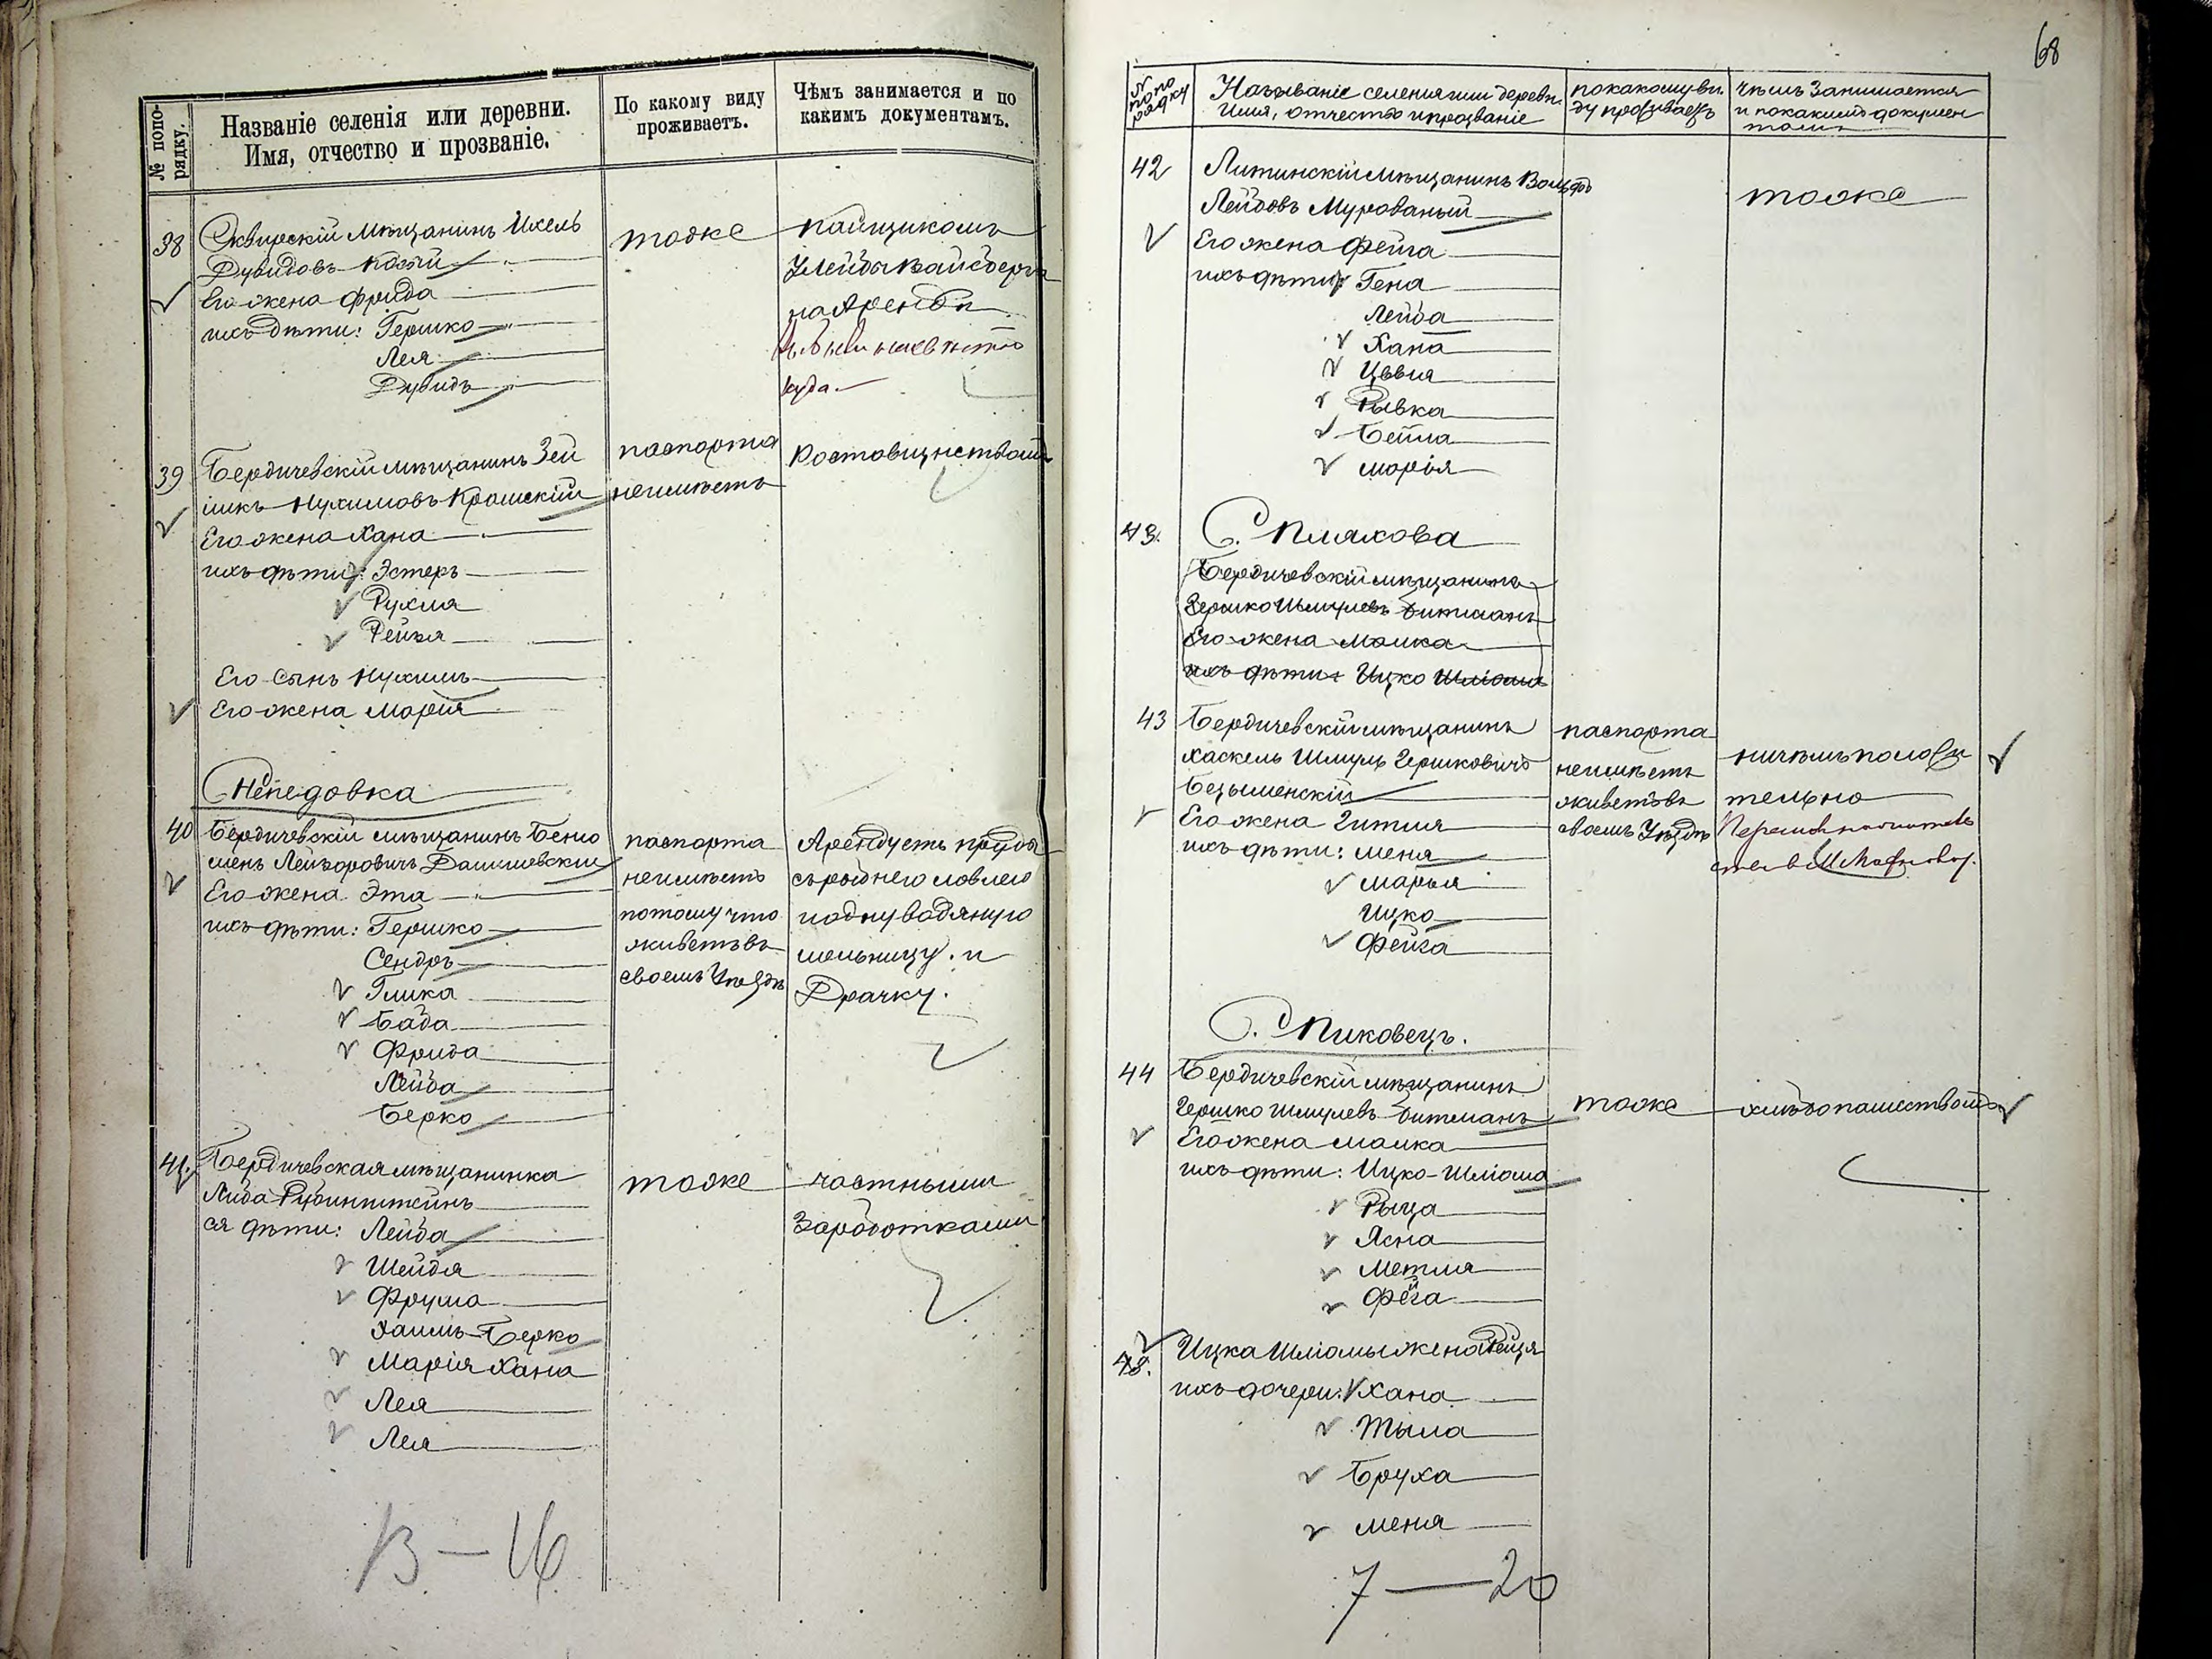 № попо-
рядку.
Названіе селенія или деревни.
Имя, отчество и прозваніе.
По какому виду
проживаетъ.
Чѣмъ занимается и по
какимъ документамъ.
38
Сквирскій мѣщанинъ Ихель
Дувидовъ
Его жена Фрида
ихъ дѣти: Гершко
Лея
Дувидъ
тоже
пайщикомъ
у Лейбы Вайсберга
на Арендѣ
куда
39
Бердичевскій мѣщанинъ Зей
Нухимовъ Крашскій
Его жена Хана
ихъ дѣти: Эстеръ
Рухля
Рейзя
Его сынъ Нухимъ
Его жена Марія
паспорта
неимѣетъ
Ростовщичествомъ
Непедовка
40
Бердичевскій мѣщанинъ Бенио
минъ Лейзоровичъ Дашевскій
Его жена Эта
ихъ дѣти: Гершко
Сендръ
Гликa
Бада
Фрида
Лейба
Берко
паспорта
неимѣетъ
потому что
живетъ въ
своемъ Уѣздѣ
Арендуетъ пруды
съ рыбнего ловлею
и одну водяную
мельницу. и
Драчку.
41.
Бердичевская мѣщанинка
Либа Рубинштейнъ
ея дѣти: Лейба
Шейдя
Фрума
Хаимъ-Берко
Марія Хана
Лея
Лея
тоже
частными
Заработками
13 — 16
68
№
по по
рядку
Названіе селенія или деревни.
Имя, отчество и прозваніе
по какому ви
ду проживаетъ
чѣмъ Занимается
и по какимъ докумен
тамъ
42
Литинскій мѣщанинъ Вольфъ
Лейбовъ Мурованый
Его жена Фейга
ихъ дѣти: Гена
Лейба
Хана
Цывія
Рывка
Бейла
Марія
тоже
43.
С. Пляхова
Бердичевскій мѣщанинъ
Гершко Шмулевъ Битманъ
Его жена Малка
ихъ дѣти: Ицко Шліома
43
Бердичевскій мѣщанинъ
Хаскель Шмуль Гершковичъ
Безыменскій
Его жена Гитля
ихъ дѣти: Меня
Марья
Ицко
Фейга
паспорта
неимѣетъ
живетъ въ
своемъ Уѣздѣ
ничѣмъ положи
тельно
С. Пиковецъ.
44
Бердичевскій мѣщанинъ
Гершко Шмулевъ Битманъ
Его жена Малка
ихъ дѣти: Ицко-Шліома
Рыца
Ясна
Метля
Фейга
тоже
хлѣбопашествомъ
45.
Ицка Шліомы жена Рейзя
ихъ дочери: Хана
Тыла
Бруха
Меня
7 — 20